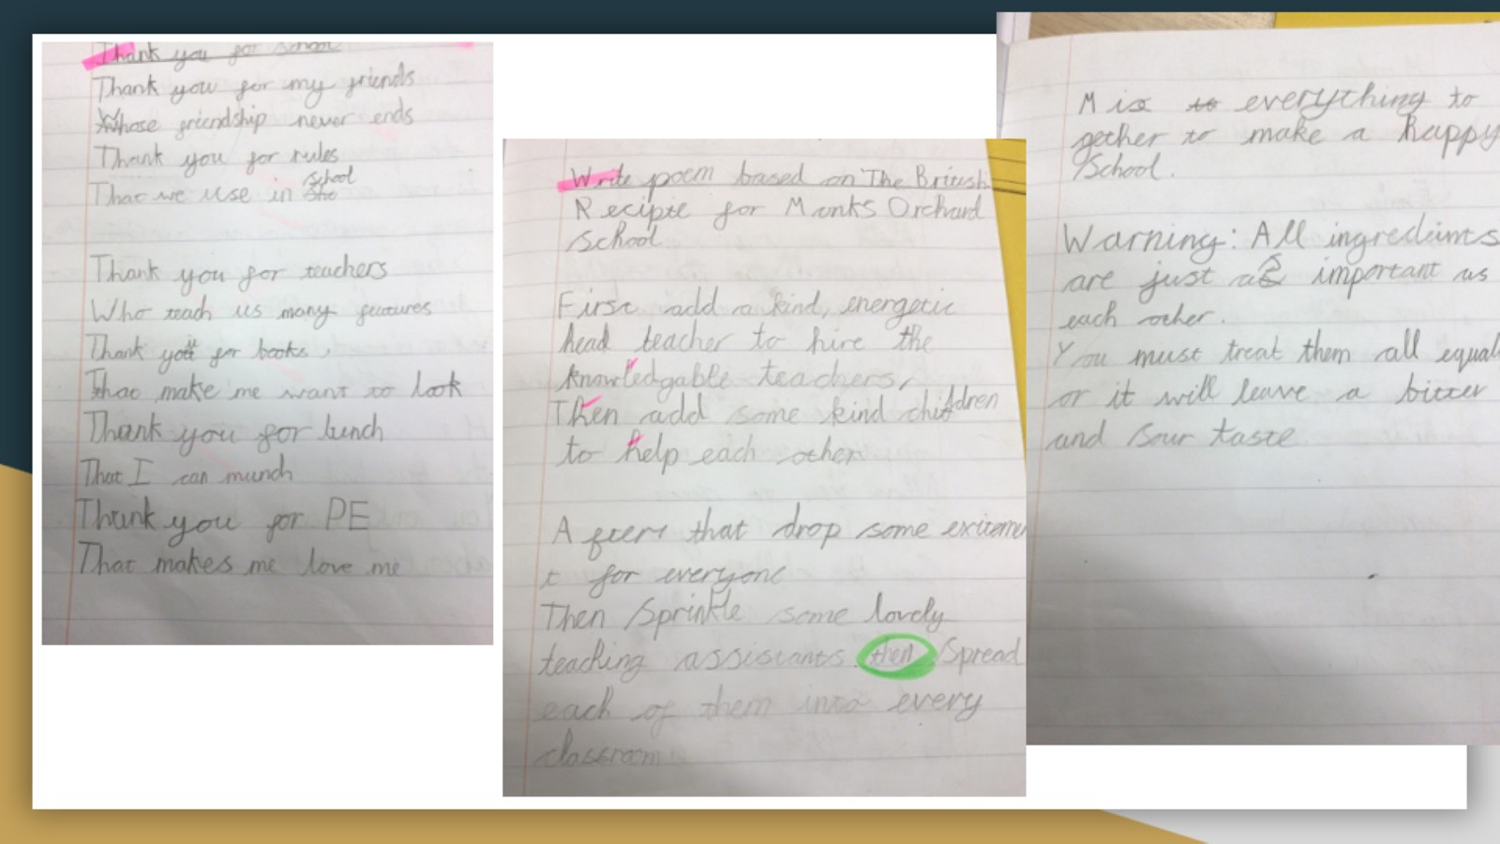 Thank you for school
Thank you for my friends
Whose friendship never ends
Thank you for rules
That we use in school
Thank you for teachers
Who teach us many features
Thank you for books.
That make me want to look
Thank you for lunch
That I can munch
Thank you for PE
That makes me love me
Write poem based on The British
Recipie for Monks Orchard
School
First add a kind, energetic
head teacher to hire the
knowledgable teachers,
Then add some kind children
to help each other
After that drop some exitemen
t for everyone
Then Sprinkle some lovely
teaching assistants. then Spread
each of them into every
classroom
Mix to everything to
gether to make a happy
School.
Warning: All ingredients
are just as important as
each other.
You must treat them all equal
or it will leave a bitter
and sour taste